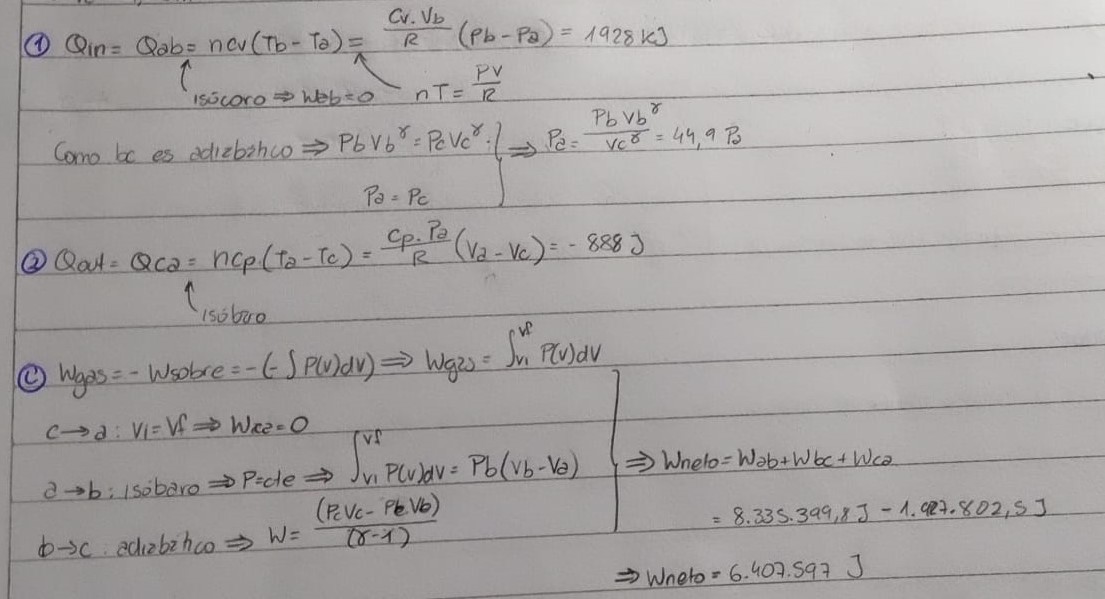 ① Qin = Qab = ncv(Tb - Ta) = Cv.Vb/R (Pb - Pa) = 1928 KJ
isócoro ⇒ Wab = 0   nT = PV/R
Como bc es adiabático ⇒ PbVb^γ = PcVc^γ ⇒ Pa = PbVb^γ/Vc^γ = 44,9 Pa
Pa = Pc
② Qout = Qca = ncp(Ta - Tc) = Cp.Pa/R (Va - Vc) = - 888 J
isóbaro
Ⓒ Wgas = - Wsobre = -(- ∫ P(v)dv) ⇒ Wgas = ∫vi^vf P(v)dv
c → a : Vi = Vf ⇒ Wca = 0
a → b : isóbaro ⇒ P = cte ⇒ ∫vi^vf P(v)dv = Pb(Vb - Va) ⇒ Wneto = Wab + Wbc + Wca
b → c : adiabático ⇒ W = (PcVc - PbVb)/(γ-1)
= 8.335.399,8 J - 1.927.802,5 J
⇒ Wneto = 6.407.597 J